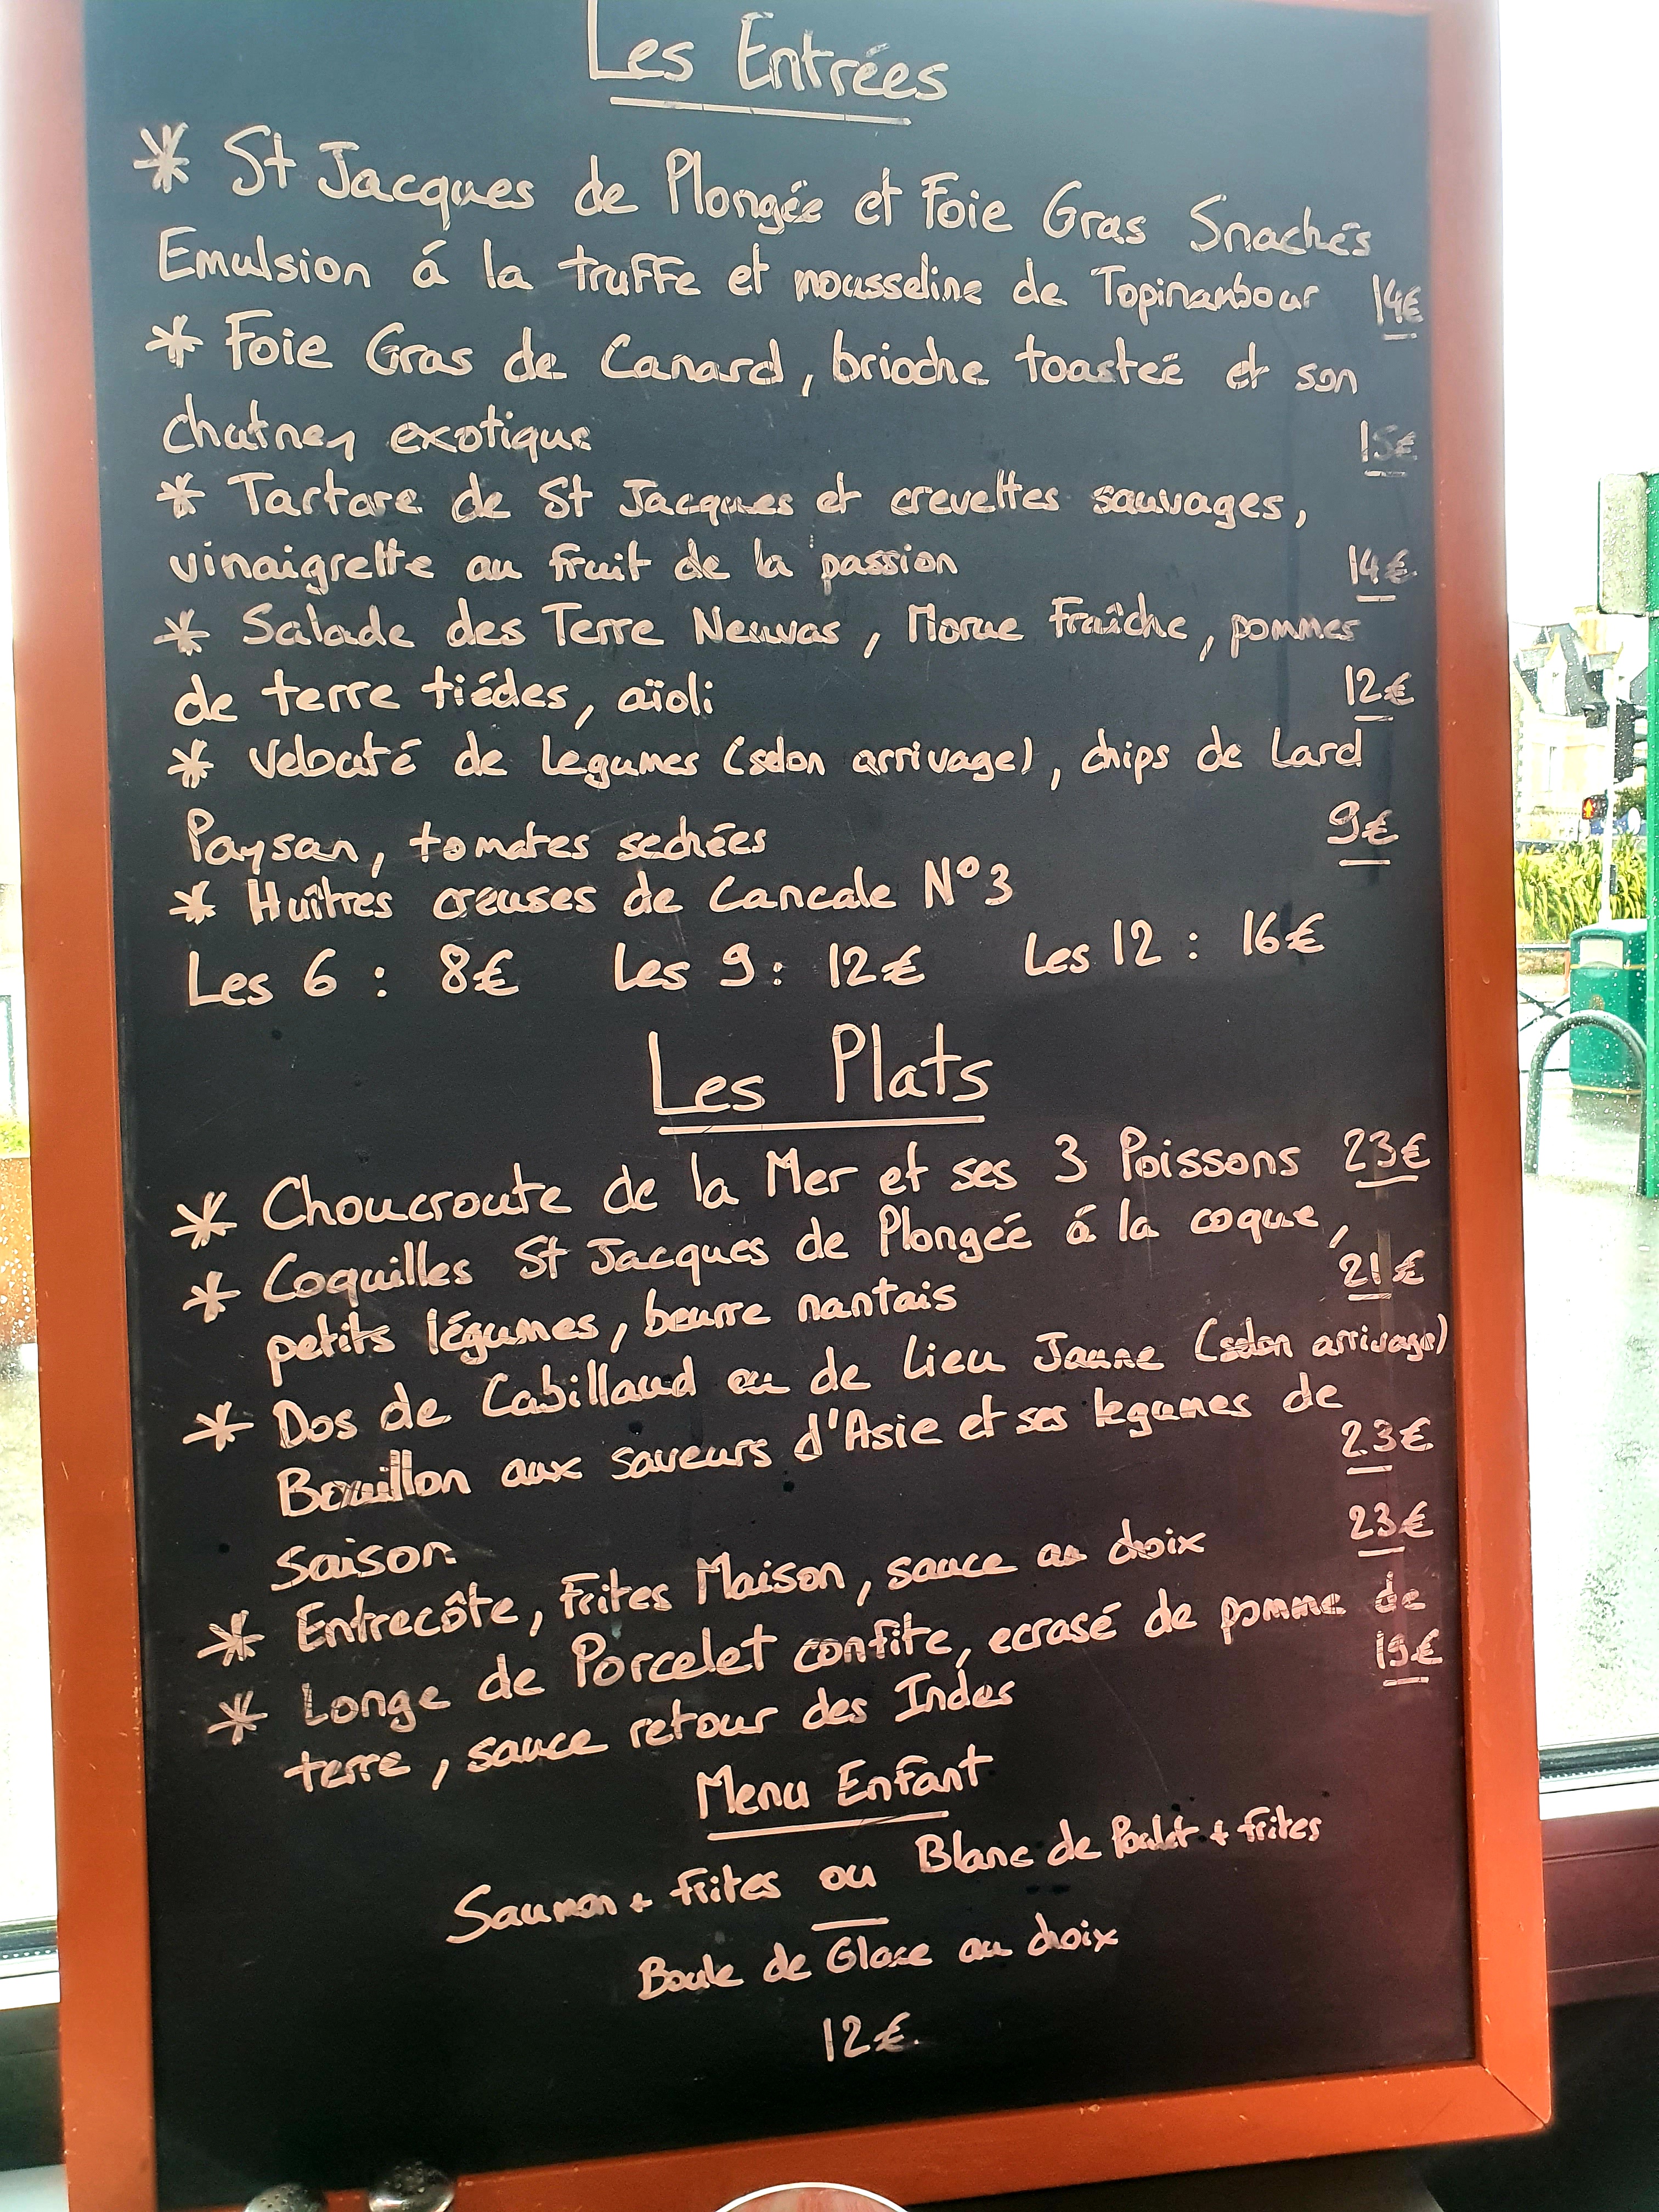 Les Entrées
* St Jacques de Plongée et Foie Gras Snachés
Emulsion á la truffe et mousseline de Topinambour 14€
* Foie Gras de Canard, brioche toasteé et son
chutney exotique 15€
* Tartare de St Jacques et crevettes sauvages,
vinaigrette au fruit de la passion 14€
* Salade des Terre Neuvas, Morue Fraîche, pommes
de terre tiédes, aïoli 12€
* Velouté de Légumes (selon arrivage), chips de Lard
Paysan, tomates sechées 9€
* Huîtres creuses de Cancale N°3
Les 6 : 8€ Les 9 : 12€ Les 12 : 16€
Les Plats
* Choucroute de la Mer et ses 3 Poissons 23€
* Coquilles St Jacques de Plongée á la coque,
petits légumes, beurre nantais 21€
* Dos de Cabillaud ou de Lieu Jaune (selon arrivage)
Bouillon aux saveurs d'Asie et ses legumes de
saison 23€
* Entrecôte, Frites Maison, sauce au choix 23€
* Longe de Porcelet confite, ecrasé de pomme de
terre, sauce retour des Indes 19€
Menu Enfant
Saumon + frites ou Blanc de Poulet + frites
Boule de Glace au choix
12€